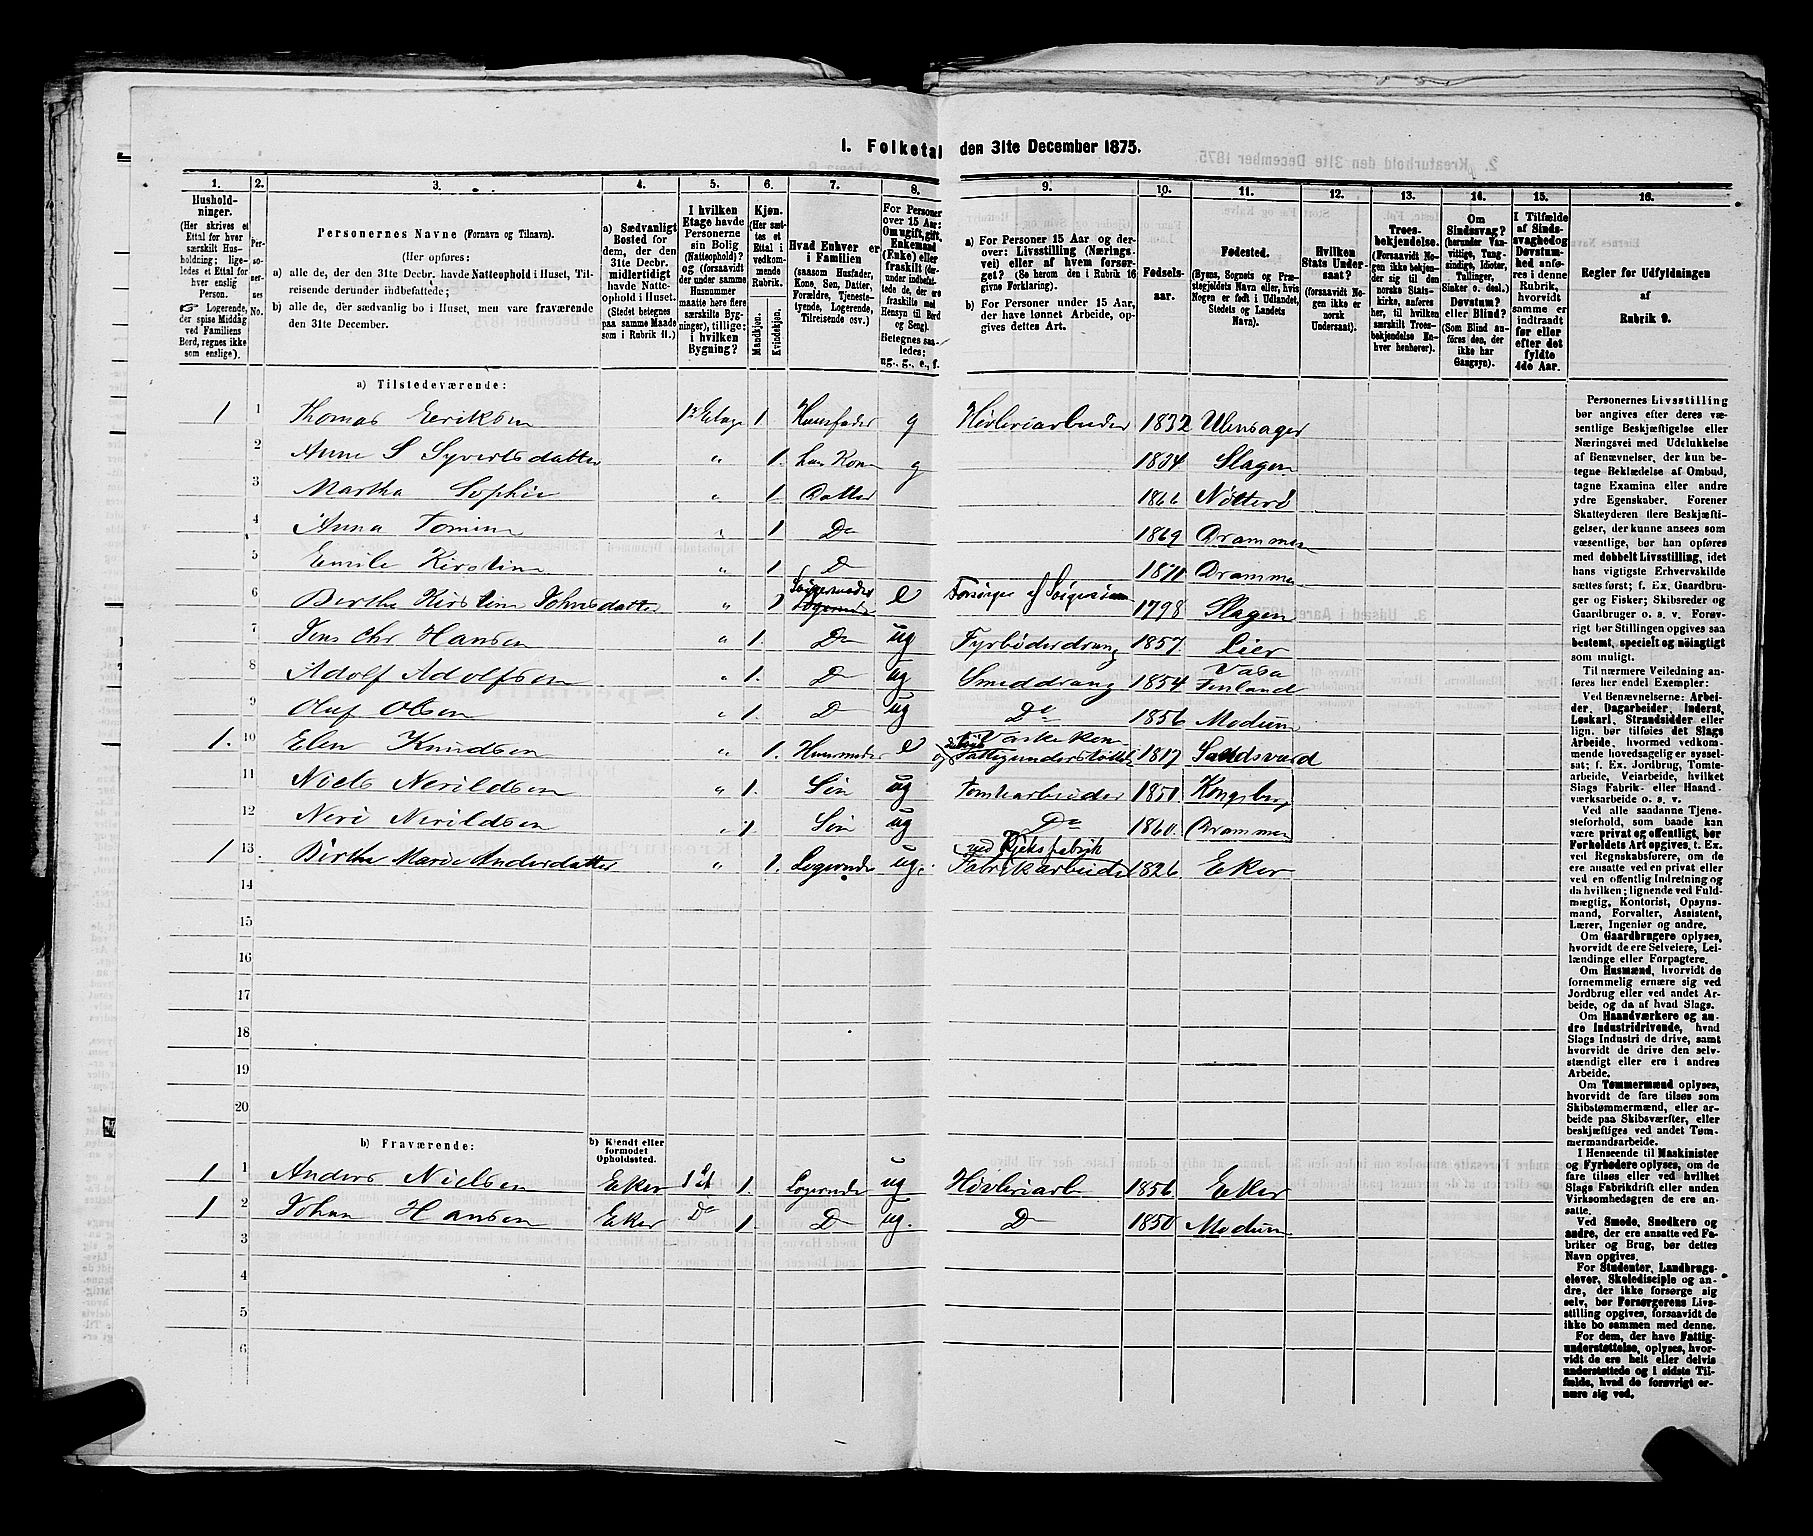 1. Folketal den 31te December 1875.
1. 2. 3. 4. 5. 6. 7. 8. 9. 10. 11. 12. 13. 14. 15. 16.
Hushold-
ninger.
(Her skrives et
Ettal for hver
særskilt Hus-
holdning; lige-
ledes et Ettal for
hver enslig
Person.
☞ Logerende,
der spise Middag
ved Familiens
Bord, regnes ikke
som enslige).
Per-
so-
ner-
nes
No.
Personernes Navne (Fornavn og Tilnavn).
(Her opføres:
a) alle de, der den 31te Decbr. havde Natteophold i Huset, Til-
reisende derunder indbefattede;
b) alle de, der sædvanlig bo i Huset, men vare fraværende
den 31te December.
a) Sædvanligt
Bosted for
dem, der den
31te Decbr.
midlertidigt
havde Natte-
ophold i Huset.
(Stedet betegnes
paa samme Maade
som i Rubrik 11.)
I hvilken
Etage havde
Personerne
sin Bolig
(Natteophold)?
og (forsaavidt
der under samme
Husnummer
maatte høre flere
særskilte Byg-
ninger), tillige:
i hvilken
Bygning?
Kjøn.
(Her sæt-
tes et
Ettal i
vedkom-
mende
Rubrik.
Mandkjøn.
Kvindekjøn.
Hvad Enhver er
i Familien
(saasom Husfader,
Kone, Søn, Datter,
Forældre, Tjeneste-
tyende, Logerende,
Tilreisende osv.)
For Personer
over 15 Aar:
Om ugift, gift,
Enkemand
(Enke) eller
fraskilt (der-
under indbefat-
tede de, der ere
fraskilte med
Hensyn til Bord
og Seng).
Betegnes saa-
ledes:
ug., g., e., f.
a) For Personer 15 Aar og der-
over: Livsstilling (Nærings-
vei) eller af hvem forsør-
get? (Se herom den i Rubrik 16
givne Forklaring).
b) For Personer under 15 Aar,
der have lønnet Arbeide, op-
gives dettes Art.
Fødsels-
aar.
Fødested.
(Byens, Sognets og Præ-
stegjeldets Navn eller, hvis
Nogen er født i Udlandet,
Stedets og Landets
Navn).
Hvilken
Stats Under-
saat?
(forsaavidt No-
gen ikke er
norsk
Undersaat).
Troes-
bekjendelse.
(Forsaavidt No-
gen ikke bekjen-
der sig til den
norske Stats-
kirke, anføres
her, til hvilken
særskilt Troes-
bekjendelse En-
hver henhører).
Om
Sindssvag?
(herunder Van-
vittige, Tung-
sindige, Idioter,
Tullinger,
Sinker o. desl.)
Døvstum?
eller Blind?
(Som Blind an-
føres den, der
ikke har
Gangsyn).
I Tilfælde
af Sinds-
svaghed og
Døvstum-
hed anfø-
res i denne
Rubrik,
hvorvidt
samme er
indtraadt
før eller
efter det
fyldte
4de Aar.
Regler for Udfyldningen
af
Rubrik 9.
a) Tilstedeværende:
1 1 Thomas Eeriksen 1ste Etage 1. Huusfader g Høvleriarbeider 1832 Ulensager
2 Anne S Syvertsdatter „ 1. hans Kone g 1834 Slagen
3 Martha Sophie „ 1. Datter 1866 Nøtterø
4 Anna Tomine „ 1 Do 1869 Drammen
5 Emile Kirstine „ 1 D 1871 Drammen
6 Berthe Kirstine Johnsdatter „ 1 Svigermoder Logerende e Forsørges af Svigersønnen 1798 Slagen
7 Jens Chr Hansen „ 1. Do ug Fyrbøderdreng 1857. Lier
8 Adolf Adolfsen „ 1. D ug Smeddreng 1854 Vasa Finland
9 Oluf Olsen „ 1. D ug Do 1856 Modum
1. 10 Elen Knudsen „ 1. Huusmoder e Vaskekone og Fattigunderstøttet 1817 Sandsværd
11 Niels Nerildsen „ 1. Søn ug Tomtearbeider 1851. Kongsberg
12 Neri Nerildsen „ 1. Søn ug Do 1860. Drammen
1 13 Birthe Marie Andersdatter „ 1. Logerende ug. ved Kjeksfabrik Fabrikarbeider 1826 Eker
14
15
16
17
18
19
20
b) Fraværende:
b) Kjendt eller
formodet
Opholdssted.
1 1 Anders Nielsen Eker 1 Et 1. Logerende ug Høvleriarb 1856. Eker
1 2 Johan Hansen Eker Do 1 D ug. D 1850 Modum
3
4
5
6
Personernes Livsstilling
bør angives efter deres væ-
sentlige Beskjæftigelse eller
Næringsvei med Udelukkelse
af Benævnelser, der kun be-
tegne Beklædelse af Ombud,
tagne Examina eller andre
ydre Egenskaber. Forener
Skatteyderen flere Beskjæfti-
gelser, der kunne ansees som
væsentlige, bør han opføres
med dobbelt Livsstilling, idet
hans vigtigste Erhvervskilde
sættes først; f. Ex. Gaardbru-
ger og Fisker; Skibsreder og
Gaardbruger o. s. v. Forøv-
rigt bør Stillingen opgives saa
bestemt, specielt og nøiagtigt
som muligt.
Til nærmere Veiledning an-
føres her endel Exempler:
Ved Benævnelserne: Arbei-
der, Dagarbeider, Inderst,
Løskarl, Strandsidder eller
lign. bør tilføies det Slags
Arbeide, hvormed vedkom-
mende hovedsagelig er syssel-
sat; f. Ex. Jordbrug, Tomte-
arbeide, Veiarbeide, hvilket
Slags Fabrik- eller Haand-
værksarbeide o. s. v.
Ved alle saadanne Tjene-
steforhold, som baade kan
være privat og offentligt, bør
Forholdets Art opgives, t. Ex.
ved Regnskabsførere, om de
ere ansatte ved en privat eller
ved en offentlig Indretning og
da hvilken; lignende ved Fuld-
mægtig, Kontorist, Opsyns-
mand, Forvalter, Assistent,
Lærer, Ingeniør og andre.
Om Gaardbrugere oplyses,
hvorvidt de ere Selveiere, Lei-
lændinge eller Forpagtere.
Om Husmænd, hvorvidt de
fornemmelig ernære sig ved
Jordbrug eller ved andet Ar-
beide, og da af hvad Slags.
Om Haandværkere og an-
dre Industridrivende, hvad
Slags Industri de drive, samt
hvorvidt de drive den selv-
stændigt eller ere i andres
Arbeide.
Om Tømmermænd oplyses,
hvorvidt de fare tilsøs som
Skibstømmermænd, eller ar-
beide paa Skibsværfter, eller
beskjæftiges ved andet Tøm-
mermandsarbeide.
I Henseende til Maskinister
og Fyrbødere oplyses, om de
fare tilsøs eller ved hvilket
Slags Fabrikdrift eller anden
Virksomhedsgren de ere an-
satte.
Ved Smede, Snedkere og
andre, der ere ansatte ved Fa-
briker og Brug, bør dettes
Navn opgives.
For Studenter, Landbrugs-
elever, Skoledisciple og an-
dre, der ikke forsørge sig
selv, bør Forsørgerens Livs-
stilling opgives, forsaavidt de
ikke bo sammen med denne.
For dem, der have Fattig-
understøttelse, oplyses, hvor-
vidt de ere helt eller delvis
understøttede og i sidste Til-
fælde, hvad de forøvrigt er-
nære sig ved.